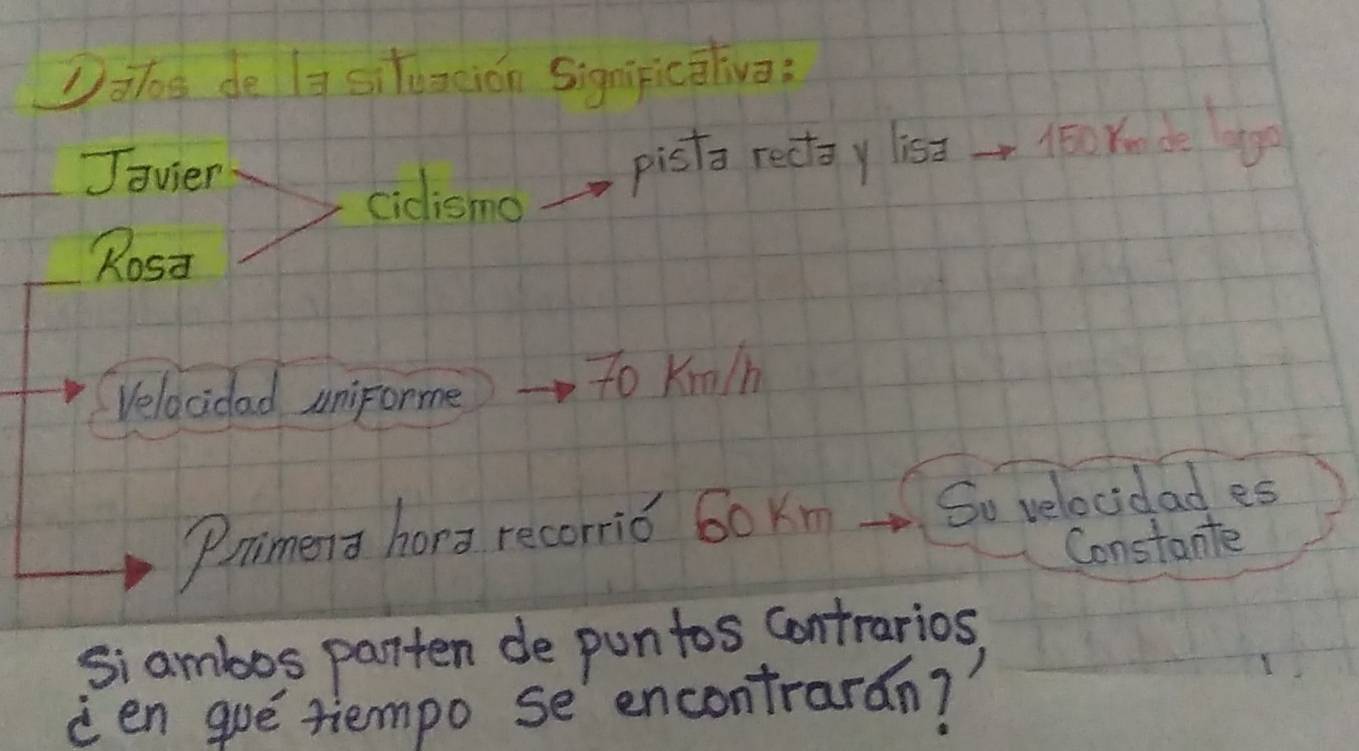 Datos de la situación significativa:
Javier
Rosa
ciclismo → pista recta y lisa → 150 Km de largo
Velocidad uniforme → 70 Km/h
Primera hora recorrió 60 Km → Su velocidad es
Constante
Si ambos parten de puntos contrarios,
¿en qué tiempo se encontrarán?